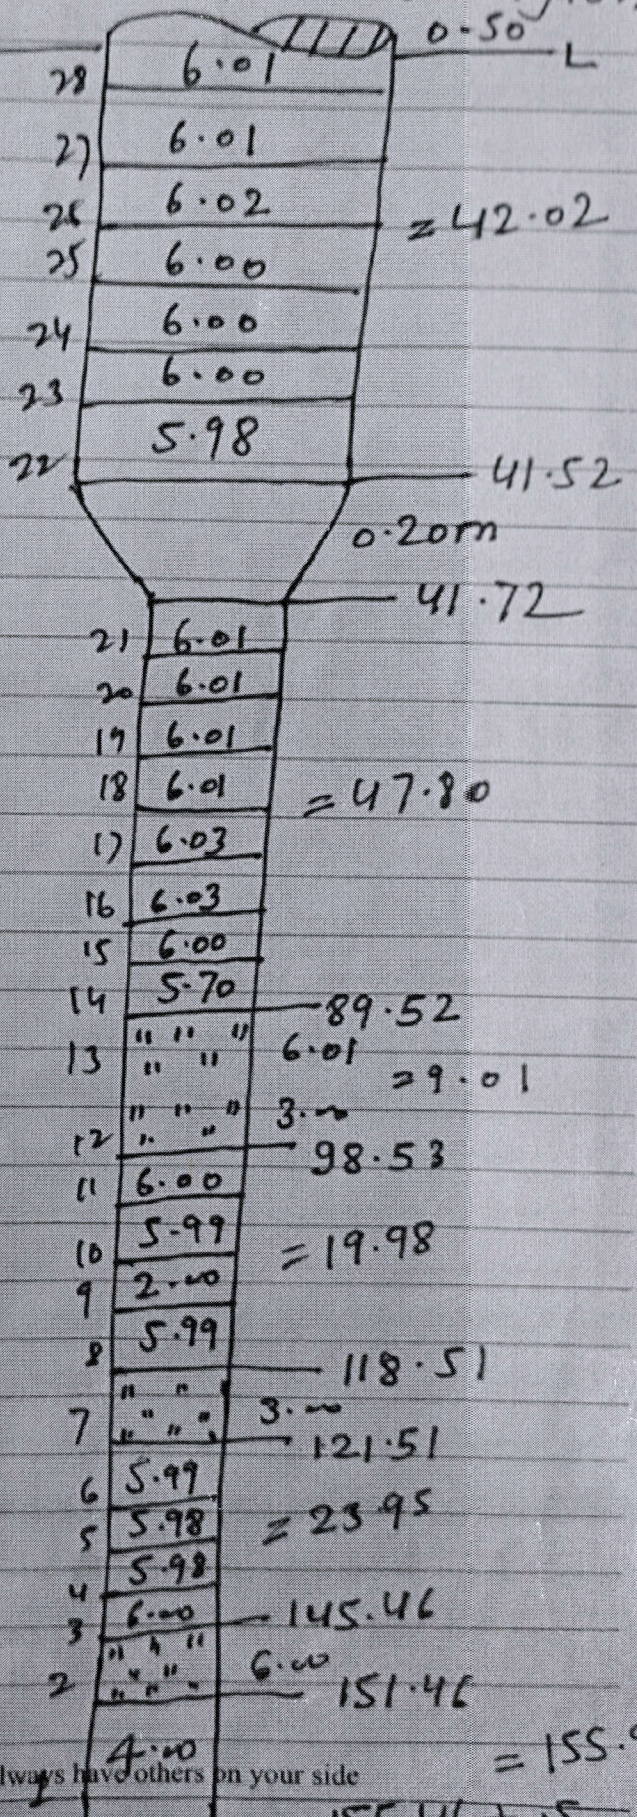 0.50
28 6.01 L
27 6.01
26 6.02 = 42.02
25 6.00
24 6.00
23 6.00
22 5.98 41.52
0.20m
41.72
21 6.01
20 6.01
19 6.01
18 6.01 = 47.80
17 6.03
16 6.03
15 6.00
14 5.70 89.52
13 6.01
= 9.01
12 3.00
98.53
11 6.00
10 5.99 = 19.98
9 2.00
8 5.99
118.51
7 3.00
121.51
6 5.99
5 5.98 = 23.95
4 5.98
3 6.00 145.46
2 6.00
151.46
4.00 = 155.
lways have others on your side
1